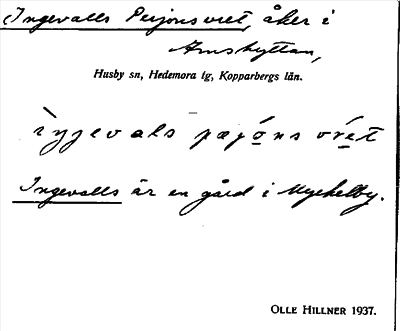 Ingevalls Persons vret, åker i
Arnshyttan,
Husby sn, Hedemora lg, Kopparbergs län.
Ingevalls är en gård i Myckelby.
OLLE HILLNER 1937.